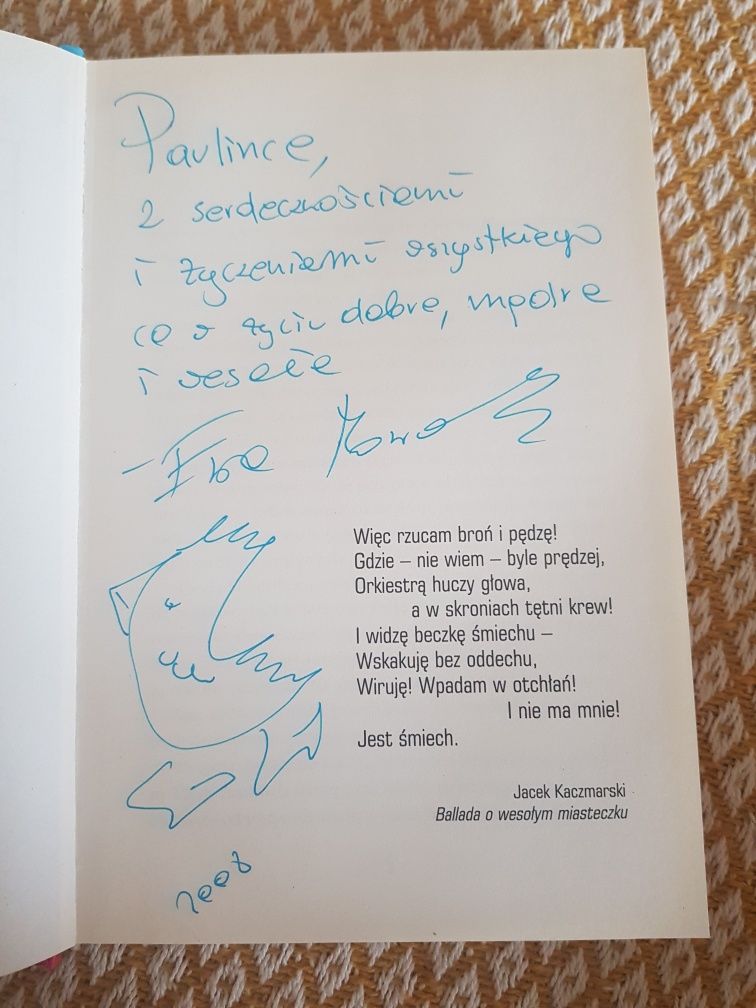 Paulince,
z serdecznościami
i życzeniami wszystkiego
co w życiu dobre, mądre
i wesołe
– Ewa
Więc rzucam broń i pędzę!
Gdzie – nie wiem – byle prędzej,
Orkiestrą huczy głowa,
a w skroniach tętni krew!
I widzę beczkę śmiechu –
Wskakuję bez oddechu,
Wiruję! Wpadam w otchłań!
I nie ma mnie!
Jest śmiech.
Jacek Kaczmarski
Ballada o wesołym miasteczku
2008